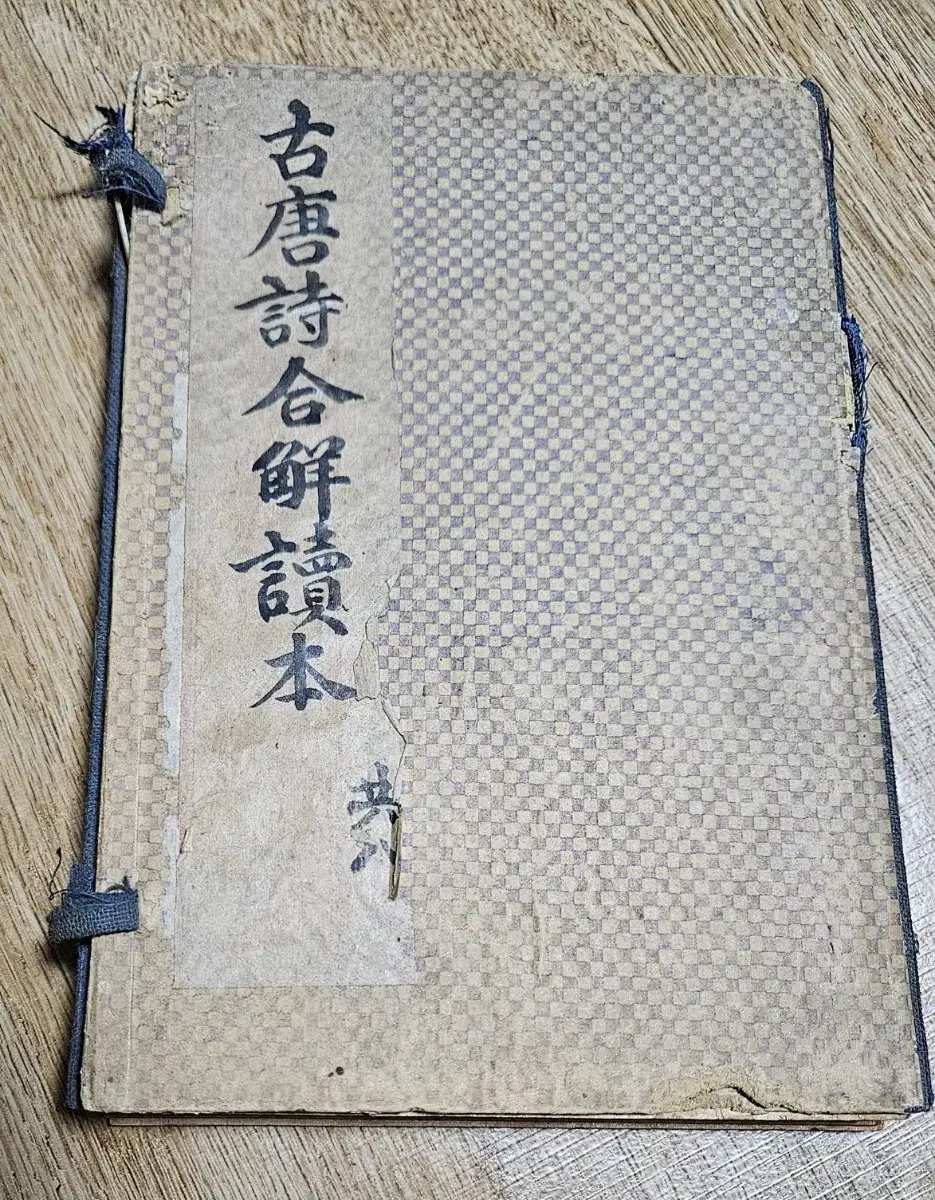 古唐詩合解讀本
共八